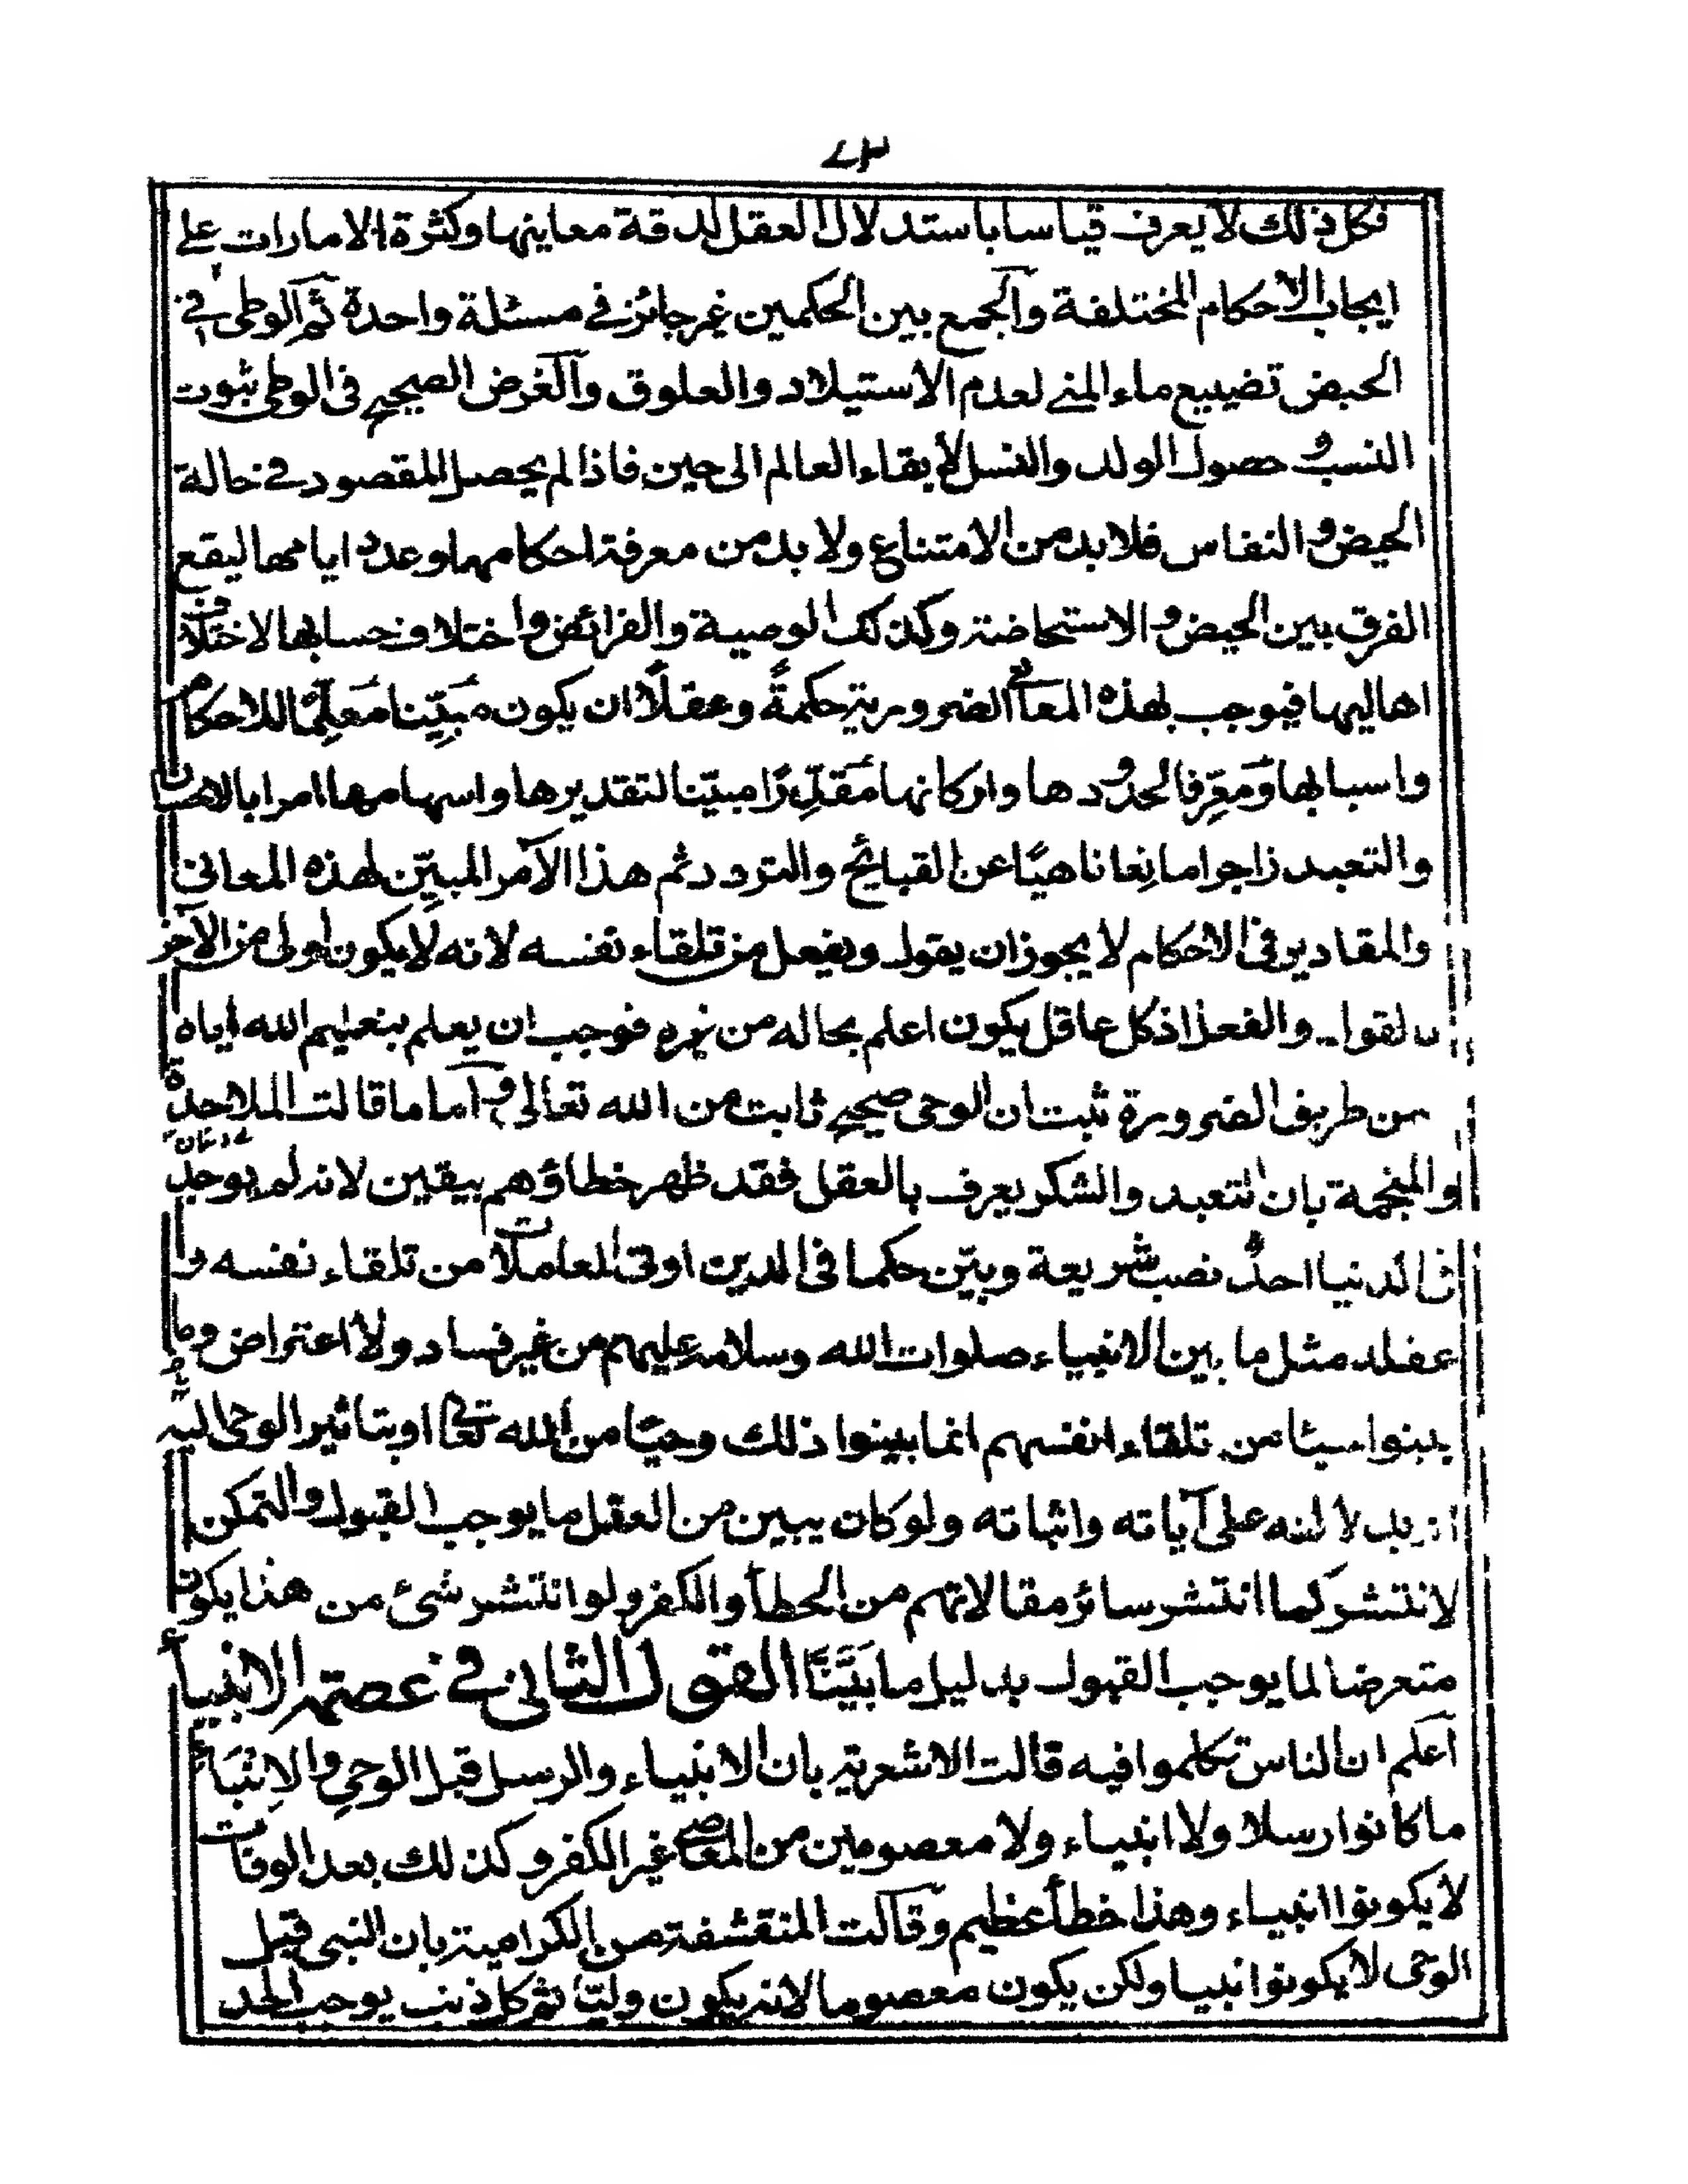 ٧٣
فكل ذلك لا يعرف قياسا باستدلال العقل لدقة معاينها وكثرة الامارات على
ايجاب الاحكام المختلفة والجمع بين الحكمين غير جائز في مسئلة واحدة ثم الوطى في
الحيض تضييع ماء المني لعدم الاستيلاد والعلوق والغرض الصحيح في الوطى ثبوت
النسب و حصول الولد والنسل لأبقاء العالم الى حين فاذا لم يحصل المقصود في حالة
الحيض والنفاس فلا بد من الامتناع ولا بد من معرفة احكامهما وعدد ايامها ليقع
الفرق بين الحيض والاستحاضة وكذلك الوصية والفرائض واختلاف حسابها لاختلاف
اهاليها فيوجب لهذه المعاني الضرورية حكمةً وعقلًا ان يكون مبَيِّنا مَعَلِّمًا للاحكام
واسبابها ومَعَرِّفا لحدودها واركانها مقدِّرًا مبيّنا لتقديرها واسهامها امرا بالاهبان
والتعبد زاجرا مانعا ناهيًا عن القبايح والتردد ثم هذا الآمر المبيِّن لهذه المعاني
والمقادير في الاحكام لا يجوز ان يقول ويفعل من تلقاء نفسه لانه لا يكون اولى من الآخر
بالقول والفعل اذ كل عاقل يكون اعلم بحاله من غيره فوجب ان يعلم بتعليم الله اياه
من طريق الضرورة ثبت ان الوحى صحيح ثابت من الله تعالى و اما ما قالت الملاحدة
والمنجمة بان التعبد والشكر يعرف بالعقل فقد ظهر خطاؤهم بيقين لانه لم يوجد
في الدنيا احدٌ نصب شريعة وبيّن حكما في الدين او في المعاملات من تلقاء نفسه و
عقله مثل ما بين الانبياء صلوات الله وسلامه عليهم من غير فساد ولا اعتراض وما
يبنوا شيئا من تلقاء انفسهم انما بينوا ذلك وحيًا من الله تعالى او بتاثير الوحى اليه
بدلالته على آياته واثباته ولو كان يبين من العقل ما يوجب القبول والتمكن
لانتشر كما انتشر سائر مقالاتهم من الخطأ والكفر ولو انتشر شئ من هذا يكون
متعرضا لما يوجب القبول بدليل ما بَيَّنَّا القول الثاني في عصمة الانبياء
اعلم ان الناس تكلموا فيه قالت الاشعرية بان الانبياء والرسل قبل الوحي والانباء
ما كانوا رسلا ولا انبياء ولا معصومين من المعاصي غير الكفر وكذلك بعد الوفات
لا يكونوا انبياء وهذا خطأ عظيم وقالت المتقشفة من الكرامية بان النبى قبل
الوحى لا يكونوا انبيا ولكن يكون معصوما لانه يكون وليّا ثم كل ذنب يوجب الحد